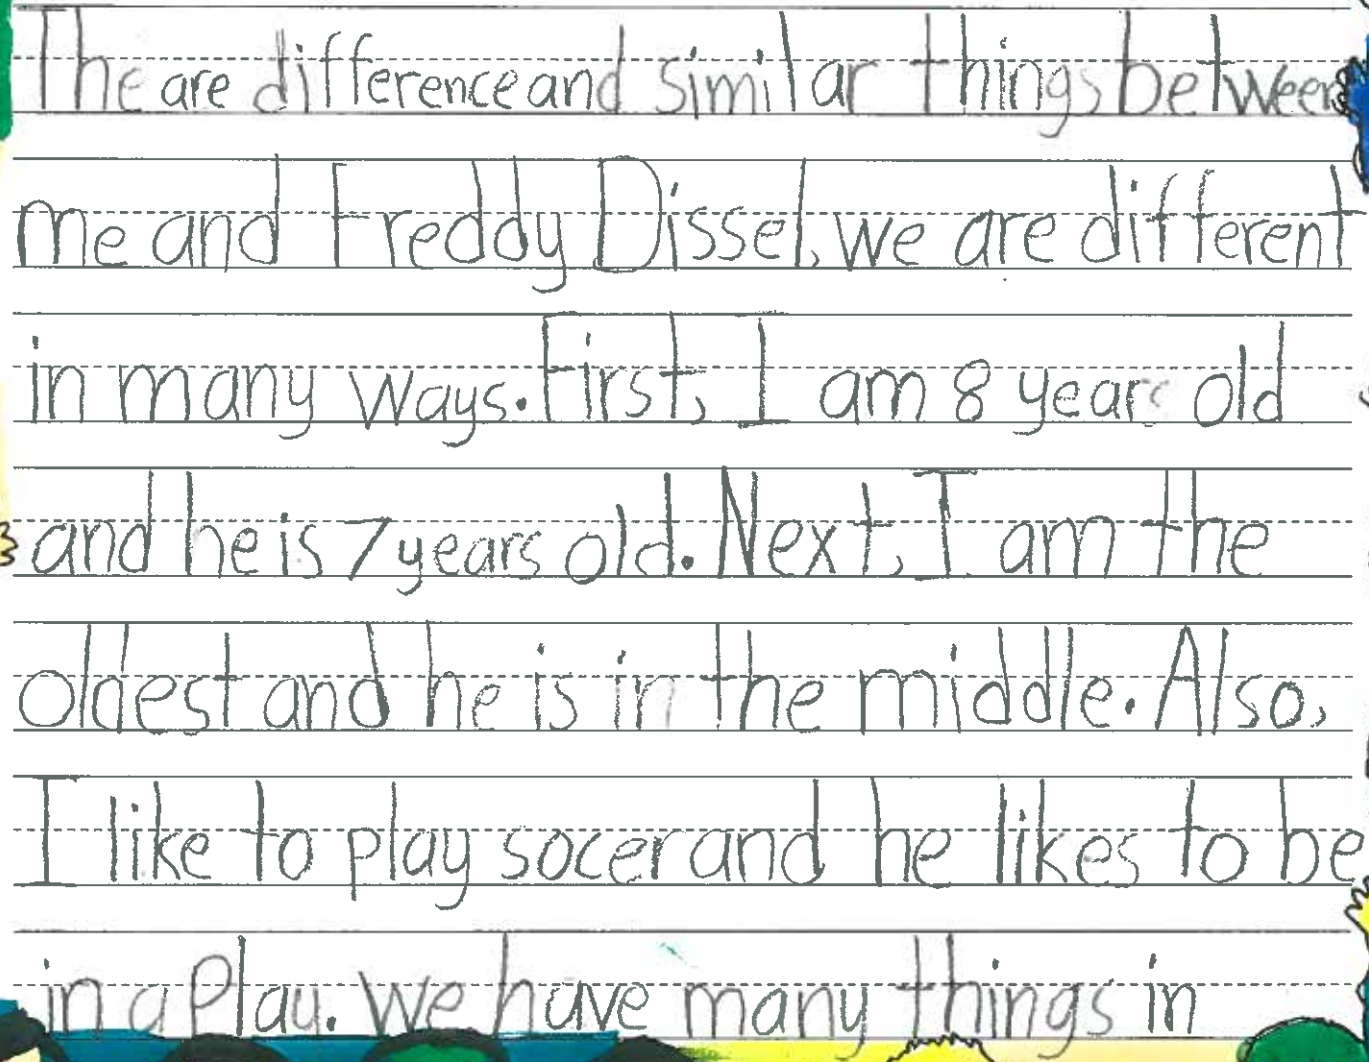 The are difference and similar things between
me and Freddy Dissel, we are different
in many ways. First, I am 8 years old
and he is 7 years old. Next, I am the
oldest and he is in the middle. Also,
I like to play socer and he likes to be
in a Play. We have many things in